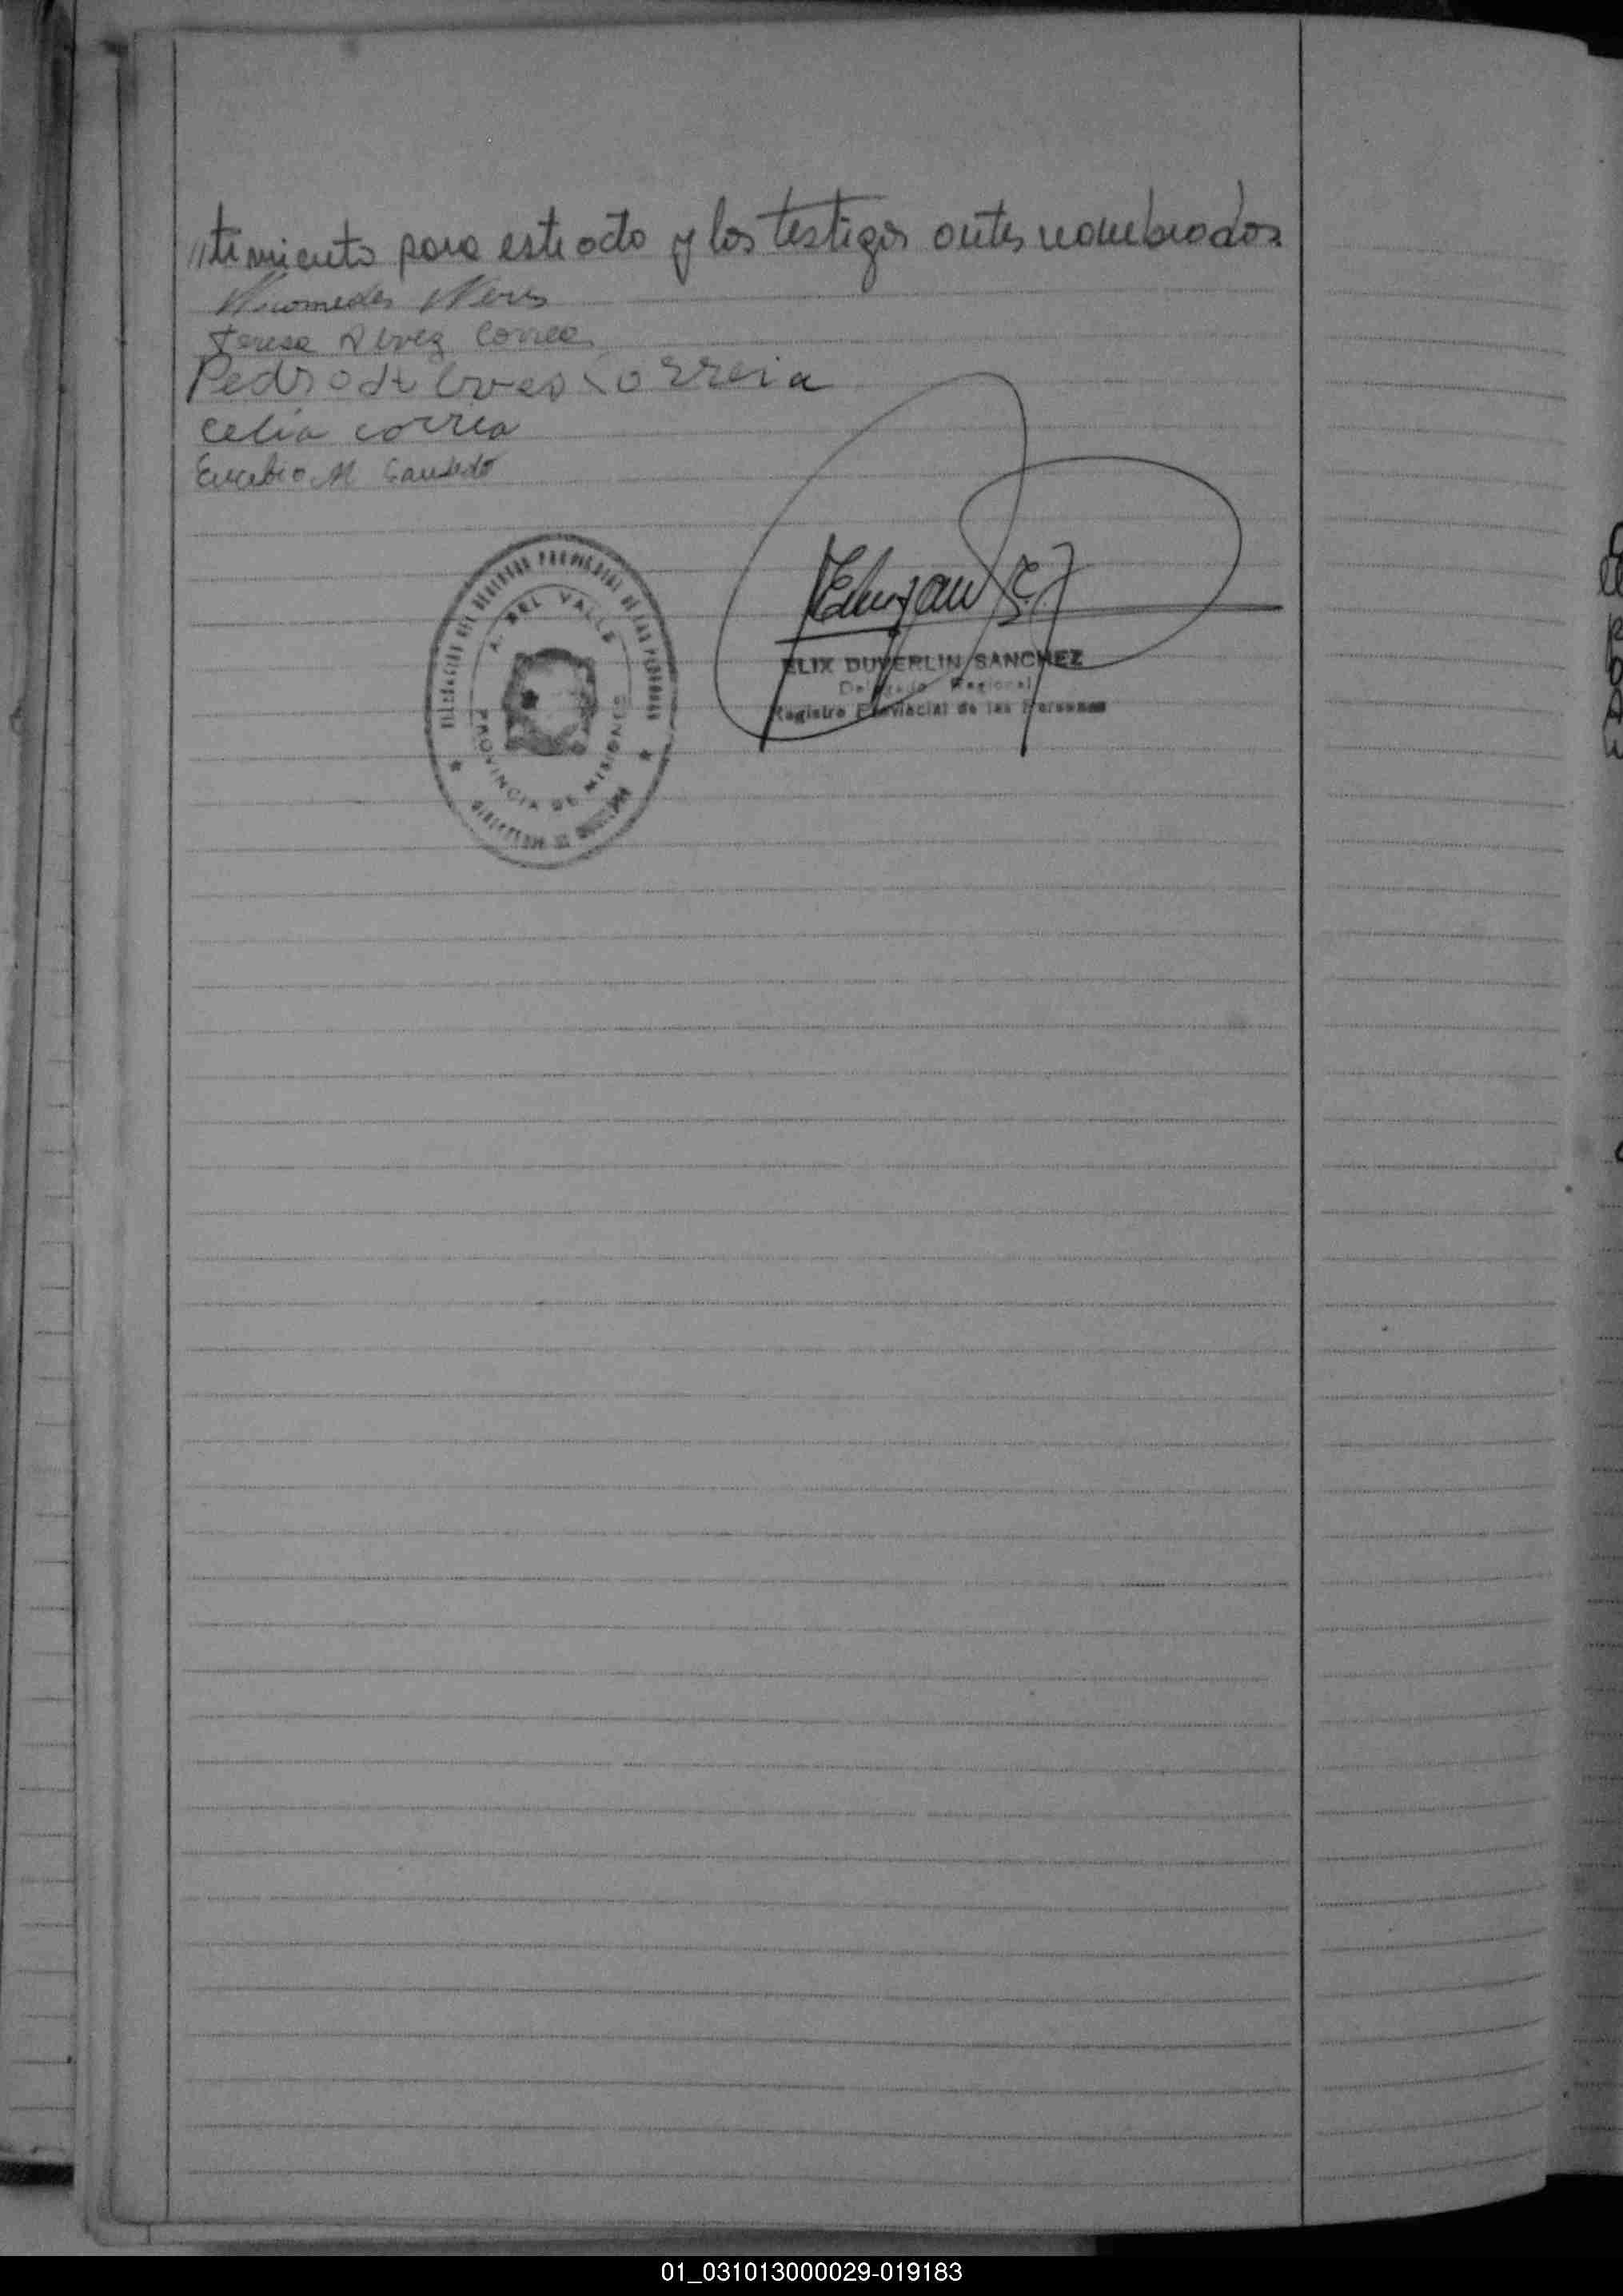 "timiento para este acto y los testigos antes nombrados
Nicomedes Neris
Teresa Alvez Correa
Pedro de Alves Correia
Celia correa
Eucebio M
DIRECCION DEL REGISTRO PROVINCIAL DE LAS PERSONAS
A. DEL VALLE
PROVINCIA DE MISIONES
ELIX DUVERLIN SANCHEZ
Delegado Regional
Registro Provincial de las Personas
01_031013000029-019183